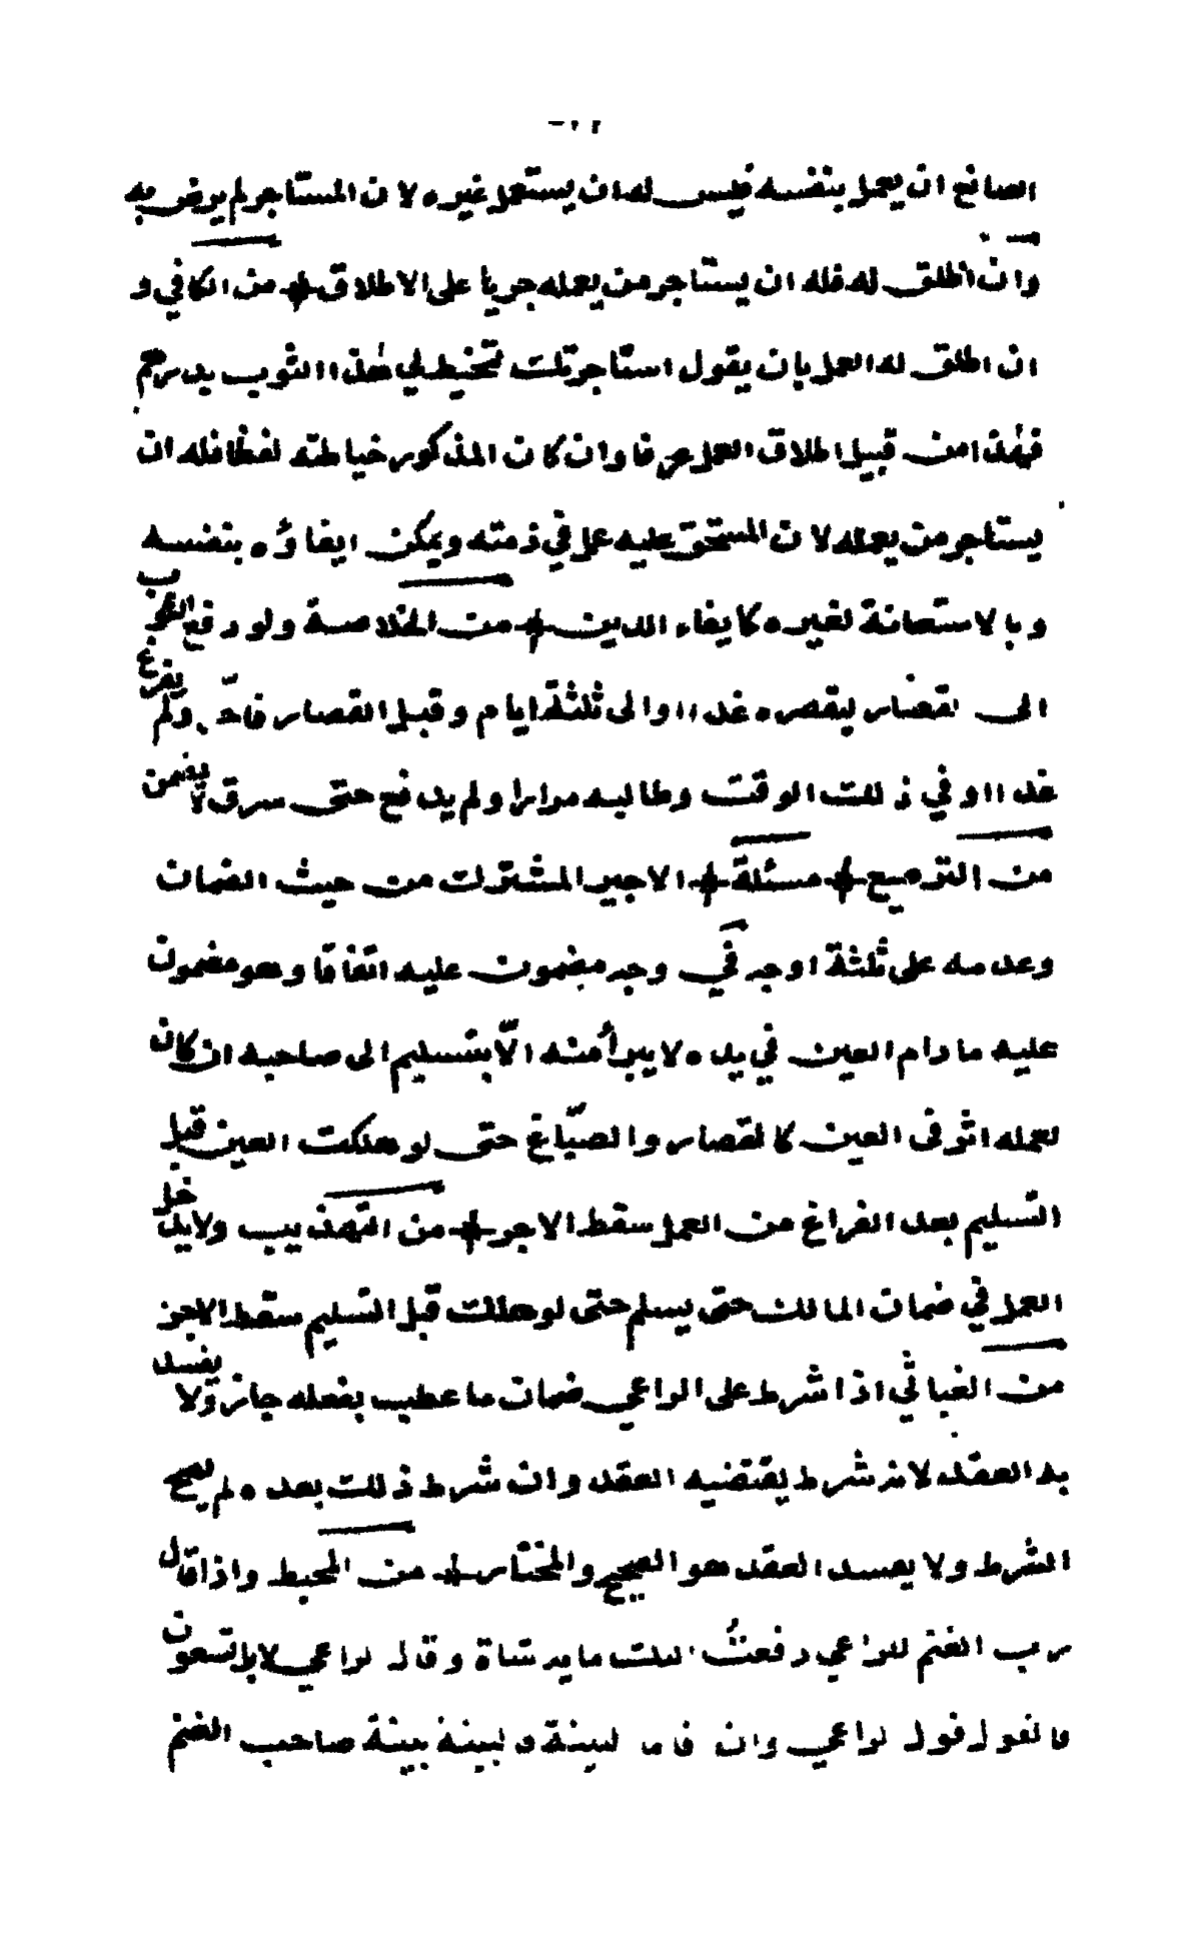 الصانع ان يعمل بنفسه فليس له ان يستعمل غيره لان المستاجر لم يرض به
وان اطلق له فله ان يستاجر من يعمله جريا على الاطلاق من الكافي و
ان اطلق له العمل بان يقول استاجرتك لتخيط لي هذا الثوب بدرهم
فهذا من قبيل اطلاق العمل عرفا وان كان المذكور خياطته لفظا فله ان
يستاجر من يعمله لان المستحق عليه عمل في ذمته ويمكن ايفاؤه بنفسه
وبالاستعانة لغيره كايفاء الدين من الخلاصة ولو دفع الثوب
الى القصار ليقصره غدا او الى ثلثة ايام وقبل القصار فاخذ ولم يفرغ
غدا او في ذلك الوقت وطالبه مرارا ولم يدفع حتى سرق لا يضمن
من الترصيع مسئلة الاجير المشترك من حيث الضمان
وعدمه على ثلثة اوجه في وجه مضمون عليه اتفاقا وهو مضمون
عليه مادام العين في يده لا يبرأ منه الّا بتسليم الى صاحبه ان كان
لعمله اثر فى العين كالقصار والصبّاغ حتى لو هلكت العين قبل
التسليم بعد الفراغ من العمل سقط الاجر من التهذيب ولا يدخل
العمل في ضمان المالك حتى يسلم حتى لو هلك قبل التسليم سقط الاجر
من الغياثي اذا شرط على الراعي ضمان ما عطب بفعله جاز ولا يفسد
به العقد لانه شرط يقتضيه العقد وان شرط ذلك بعده لم يصح
الشرط ولا يفسد العقد هو الصحيح والمختار من المحيط واذا قال
رب الغنم للراعي دفعت اليك مايه شاة وقال لراعي لا بل تسعون
فالقول قول لراعي وان قاما لبينة فالبينة بينة صاحب الغنم